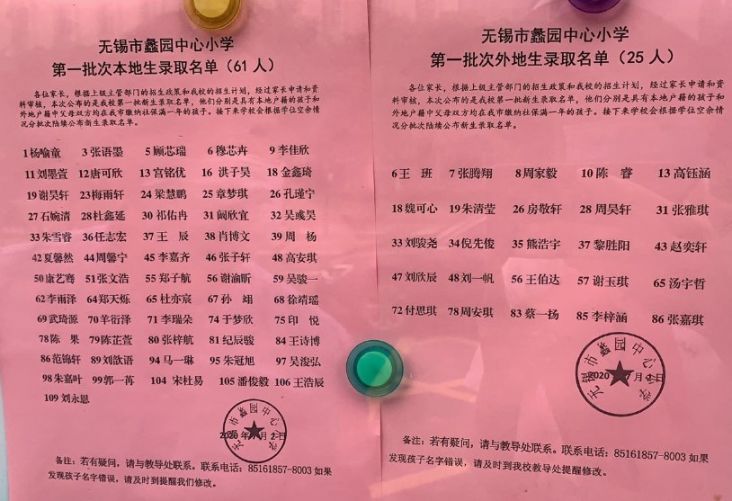 无锡市蠡园中心小学
第一批次本地生录取名单（61 人）
各位家长，根据上级主管部门的招生政策和我校的招生计划，经过家长申请和资
料审核，本次公布的是我校第一批新生录取名单，他们分别是具有本地户籍的孩子和
外地户籍中父母双方均在我市缴纳社保满一年的孩子。接下来学校会根据学位空余情
况分批次陆续公布新生录取名单。
1杨喻童 3 张语墨 5 顾芯瑞 6 穆芯卉 9 李佳欣
11 刘墨萱 12唐可欣 13 宫铭优 16 洪子昊 18 金鑫琦
19 谢昊轩 23梅雨轩 24 梁慧鹏 25 章梦琪 26 孔瑾宁
27 石婉清 28 杜鑫延 30 祁佑冉 31 阚欣宜 32 吴彧昊
33 朱雪睿 36 任志宏 37 王 辰 38 肖博文 39 周 杨
42 夏馨然 44 周馨宁 45 李嘉齐 46 张子轩 48 高安琪
50 康艺骞 51 张文浩 55 郑子航 56 谢渝昕 59 吴骏一
62 李雨泽 64 郑天烁 65 杜亦宸 67 孙 翊 68 徐靖瑶
69 武琦源 70 羊衍泽 71 李瑞朵 74 于梦欣 75 印 悦
78 陈 果 79 陈芷萱 80 张梓航 81 纪辰骏 84 王诗博
86 范锦轩 89 刘歆语 94 马一琳 95 朱冠旭 97 吴浚弘
98 朱嘉叶 99 郭一芮 104 宋杜易 105 潘俊毅 106 王浩辰
109 刘永恩
无锡市蠡园中心小学
备注：若有疑问，请与教导处联系。联系电话：85161857-8003 如果
发现孩子名字错误，请及时到提醒我们修改。
无锡市蠡园中心小学
第一批次外地生录取名单（25 人）
各位家长，根据上级主管部门的招生政策和我校的招生计划，经过家长申请和资
料审核，本次公布的是我校第一批新生录取名单，他们分别是具有本地户籍的孩子和
外地户籍中父母双方均在我市缴纳社保满一年的孩子。接下来学校会根据学位空余情
况分批次陆续公布新生录取名单。
6 王 班 7 张腾翔 8 周家毅 10 陈 睿 13 高钰涵
18 魏可心 19 朱清莹 26 房敬轩 28 周昊轩 31 张雅琪
33 刘骏尧 34 倪先俊 35 熊浩宇 37 黎胜阳 43 赵奕轩
47 刘欣辰 48 刘一帆 56 王伯达 57 谢玉琪 65 汤宇哲
72 付思琪 78 周安琪 83 蔡一扬 85 李梓涵 86 张嘉琪
无锡市蠡园中心小学
备注：若有疑问，请与教导处联系。联系电话：85161857-8003 如果
发现孩子名字错误，请及时到我校教导处提醒修改。